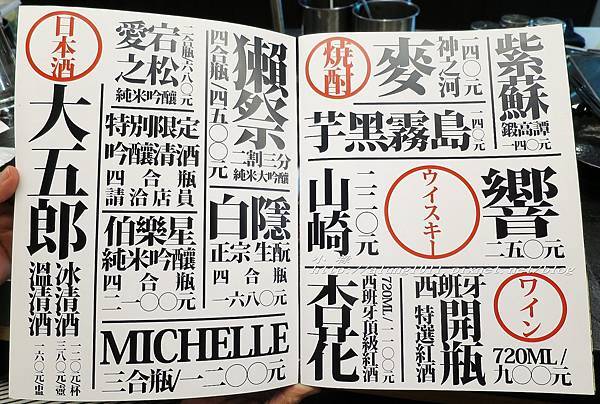 日本酒
大五郎
冰清酒
一二〇元杯
三八〇元壺
溫清酒
一六〇元壺
宕松
愛之
純米吟釀
二合瓶一六八〇元
特別限定
吟釀清酒
四合瓶
請洽店員
伯樂星
純米吟釀
四合瓶
二一〇〇元
獺祭
二割三分
純米大吟釀
四合瓶四五〇〇元
白隱
正宗生酛
四合瓶
一六八〇元
MICHELLE
三合瓶/一二〇〇元
焼酎
麥
神之河
一四〇元
紫蘇
鍛高譚
一四〇元
芋黑霧島
一四〇元
山崎
二二〇元
ウイスキー
響
二五〇元
杏花
西班牙頂級紅酒
720ML/一一〇〇元
開瓶
西班牙
特選紅酒
ワイン
720ML/
九〇〇元